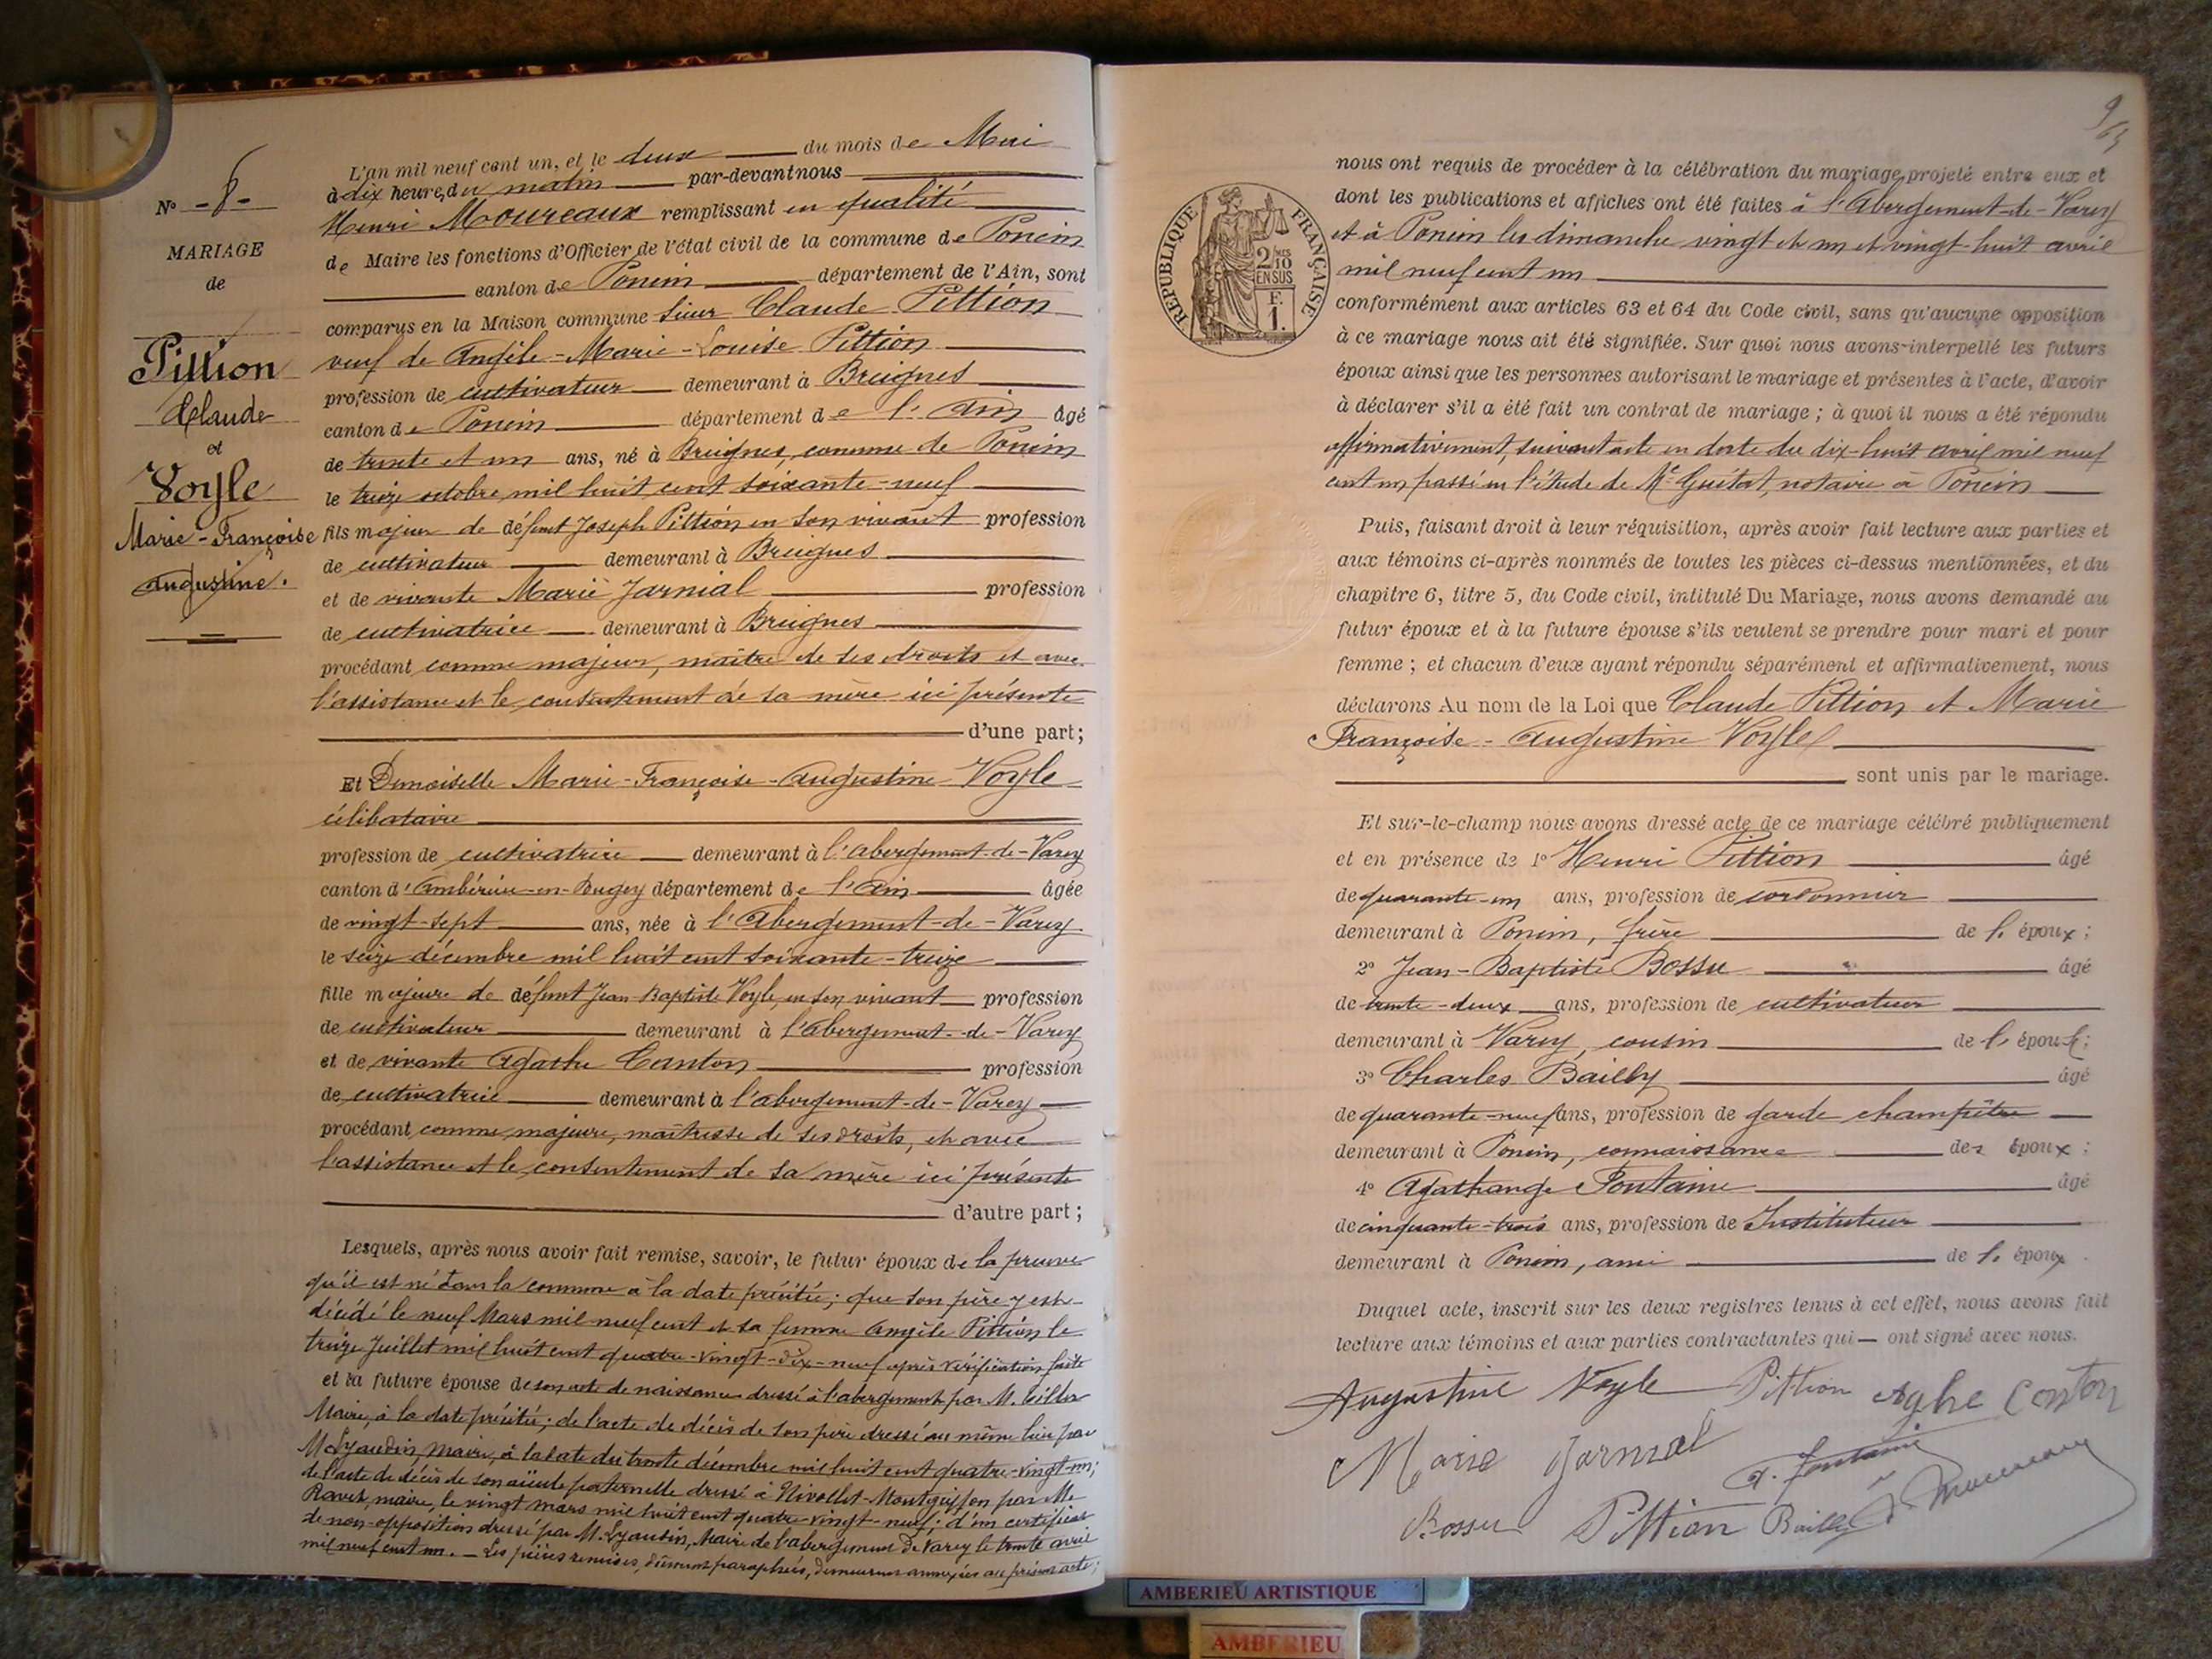 L'an mil neuf cent un, et le deux du mois de Mai
à dix heures du matin par-devant nous
Henri Moureaux remplissant en qualité
de Maire les fonctions d'Officier de l'état civil de la commune de Poncin
canton de Poncin département de l'Ain, sont
comparus en la Maison commune sieur Claude Pittion
veuf de Angèle-Marie-Louise Pittion
profession de cultivateur demeurant à Breignes
canton de Poncin département de l'Ain âgé
de trente et un ans, né à Breignes, commune de Poncin
le treize octobre mil huit cent soixante-neuf
fils majeur de défunt Joseph Pittion en son vivant profession
de cultivateur demeurant à Breignes
et de vivante Marie Jarnial profession
de cultivatrice demeurant à Breignes
procédant comme majeur, maître de ses droits et avec
l'assistance et le consentement de sa mère ici présente
d'une part;
Et Demoiselle Marie-Françoise-Augustine Voyle
célibataire
profession de cultivatrice demeurant à l'Abergement-de-Varey
canton d'Ambérieu-en-Bugey département de l'Ain âgée
de vingt-sept ans, née à l'Abergement-de-Varey
le seize décembre mil huit cent soixante-treize
fille majeure de défunt Jean-Baptiste Voyle, en son vivant profession
de cultivateur demeurant à l'Abergement-de-Varey
et de vivante Agathe Canton profession
de cultivatrice demeurant à l'abergement-de-Varey
procédant comme majeure, maîtresse de ses droits, et avec
l'assistance et le consentement de sa mère ici présente
d'autre part;
Lesquels, après nous avoir fait remise, savoir, le futur époux de la preuve
qu'il est né dans la commune à la date précitée; que son père y est
décédé le neuf Mars mil neuf cent et sa femme Angèle Pittion le
treize Juillet mil huit cent quatre-vingt-dix-neuf après vérification faite
et la future épouse de son acte de naissance dressé à l'abergement par M.
Maire, à la date précitée; de l'acte de décès de son père dressé au même lieu par
M. Lyaudin, maire, à la date du trente décembre mil huit cent quatre-vingt-un;
de l'acte de décès de son aïeule paternelle dressé à Nivollet-Montgriffon par M.
Ravet, maire, le vingt mars mil huit cent quatre-vingt-neuf; d'un certificat
de non-opposition dressé par M. Lyaudin, Maire de l'abergement de Varey le trente avril
mil neuf cent un. — Les pièces remises, dûment paraphées, demeurent annexées au présent acte;
N° -8-
MARIAGE
de
Pittion
Claude
et
Voyle
Marie-Françoise
Augustine.
9
nous ont requis de procéder à la célébration du mariage projeté entre eux et
dont les publications et affiches ont été faites à l'Abergement-de-Varey
et à Poncin les dimanche vingt et un et vingt-huit avril
mil neuf cent un
conformément aux articles 63 et 64 du Code civil, sans qu'aucune opposition
à ce mariage nous ait été signifiée. Sur quoi nous avons interpellé les futurs
époux ainsi que les personnes autorisant le mariage et présentes à l'acte, d'avoir
à déclarer s'il a été fait un contrat de mariage; à quoi il nous a été répondu
affirmativement, suivant acte en date du dix-huit avril mil neuf
cent un passé en l'étude de Me Guitat, notaire à Poncin
Puis, faisant droit à leur réquisition, après avoir fait lecture aux parties et
aux témoins ci-après nommés de toutes les pièces ci-dessus mentionnées, et du
chapitre 6, titre 5, du Code civil, intitulé Du Mariage, nous avons demandé au
futur époux et à la future épouse s'ils veulent se prendre pour mari et pour
femme; et chacun d'eux ayant répondu séparément et affirmativement, nous
déclarons Au nom de la Loi que Claude Pittion et Marie
Françoise-Augustine Voyle
sont unis par le mariage.
Et sur-le-champ nous avons dressé acte de ce mariage célébré publiquement
et en présence de 1° Henri Pittion âgé
de quarante-un ans, profession de cordonnier
demeurant à Poncin, frère de l'époux;
2° Jean-Baptiste Bossu âgé
de trente-deux ans, profession de cultivateur
demeurant à Varey, cousin de l'épouse;
3° Charles Bailly âgé
de quarante-neuf ans, profession de garde champêtre
demeurant à Poncin, connaissance des époux;
4° Agathange Fontaine âgé
de cinquante-trois ans, profession de Instituteur
demeurant à Poncin, ami de l'époux.
Duquel acte, inscrit sur les deux registres tenus à cet effet, nous avons fait
lecture aux témoins et aux parties contractantes qui — ont signé avec nous.
Augustine Voyle Pittion Aghe Conton
Marie Jarnial A. Fontaine
Bossu Pittion Bailly Moureaux
REPUBLIQUE FRANÇAISE
2/10 EN SUS
F. 1.
AMBERIEU ARTISTIQUE
AMBERIEU